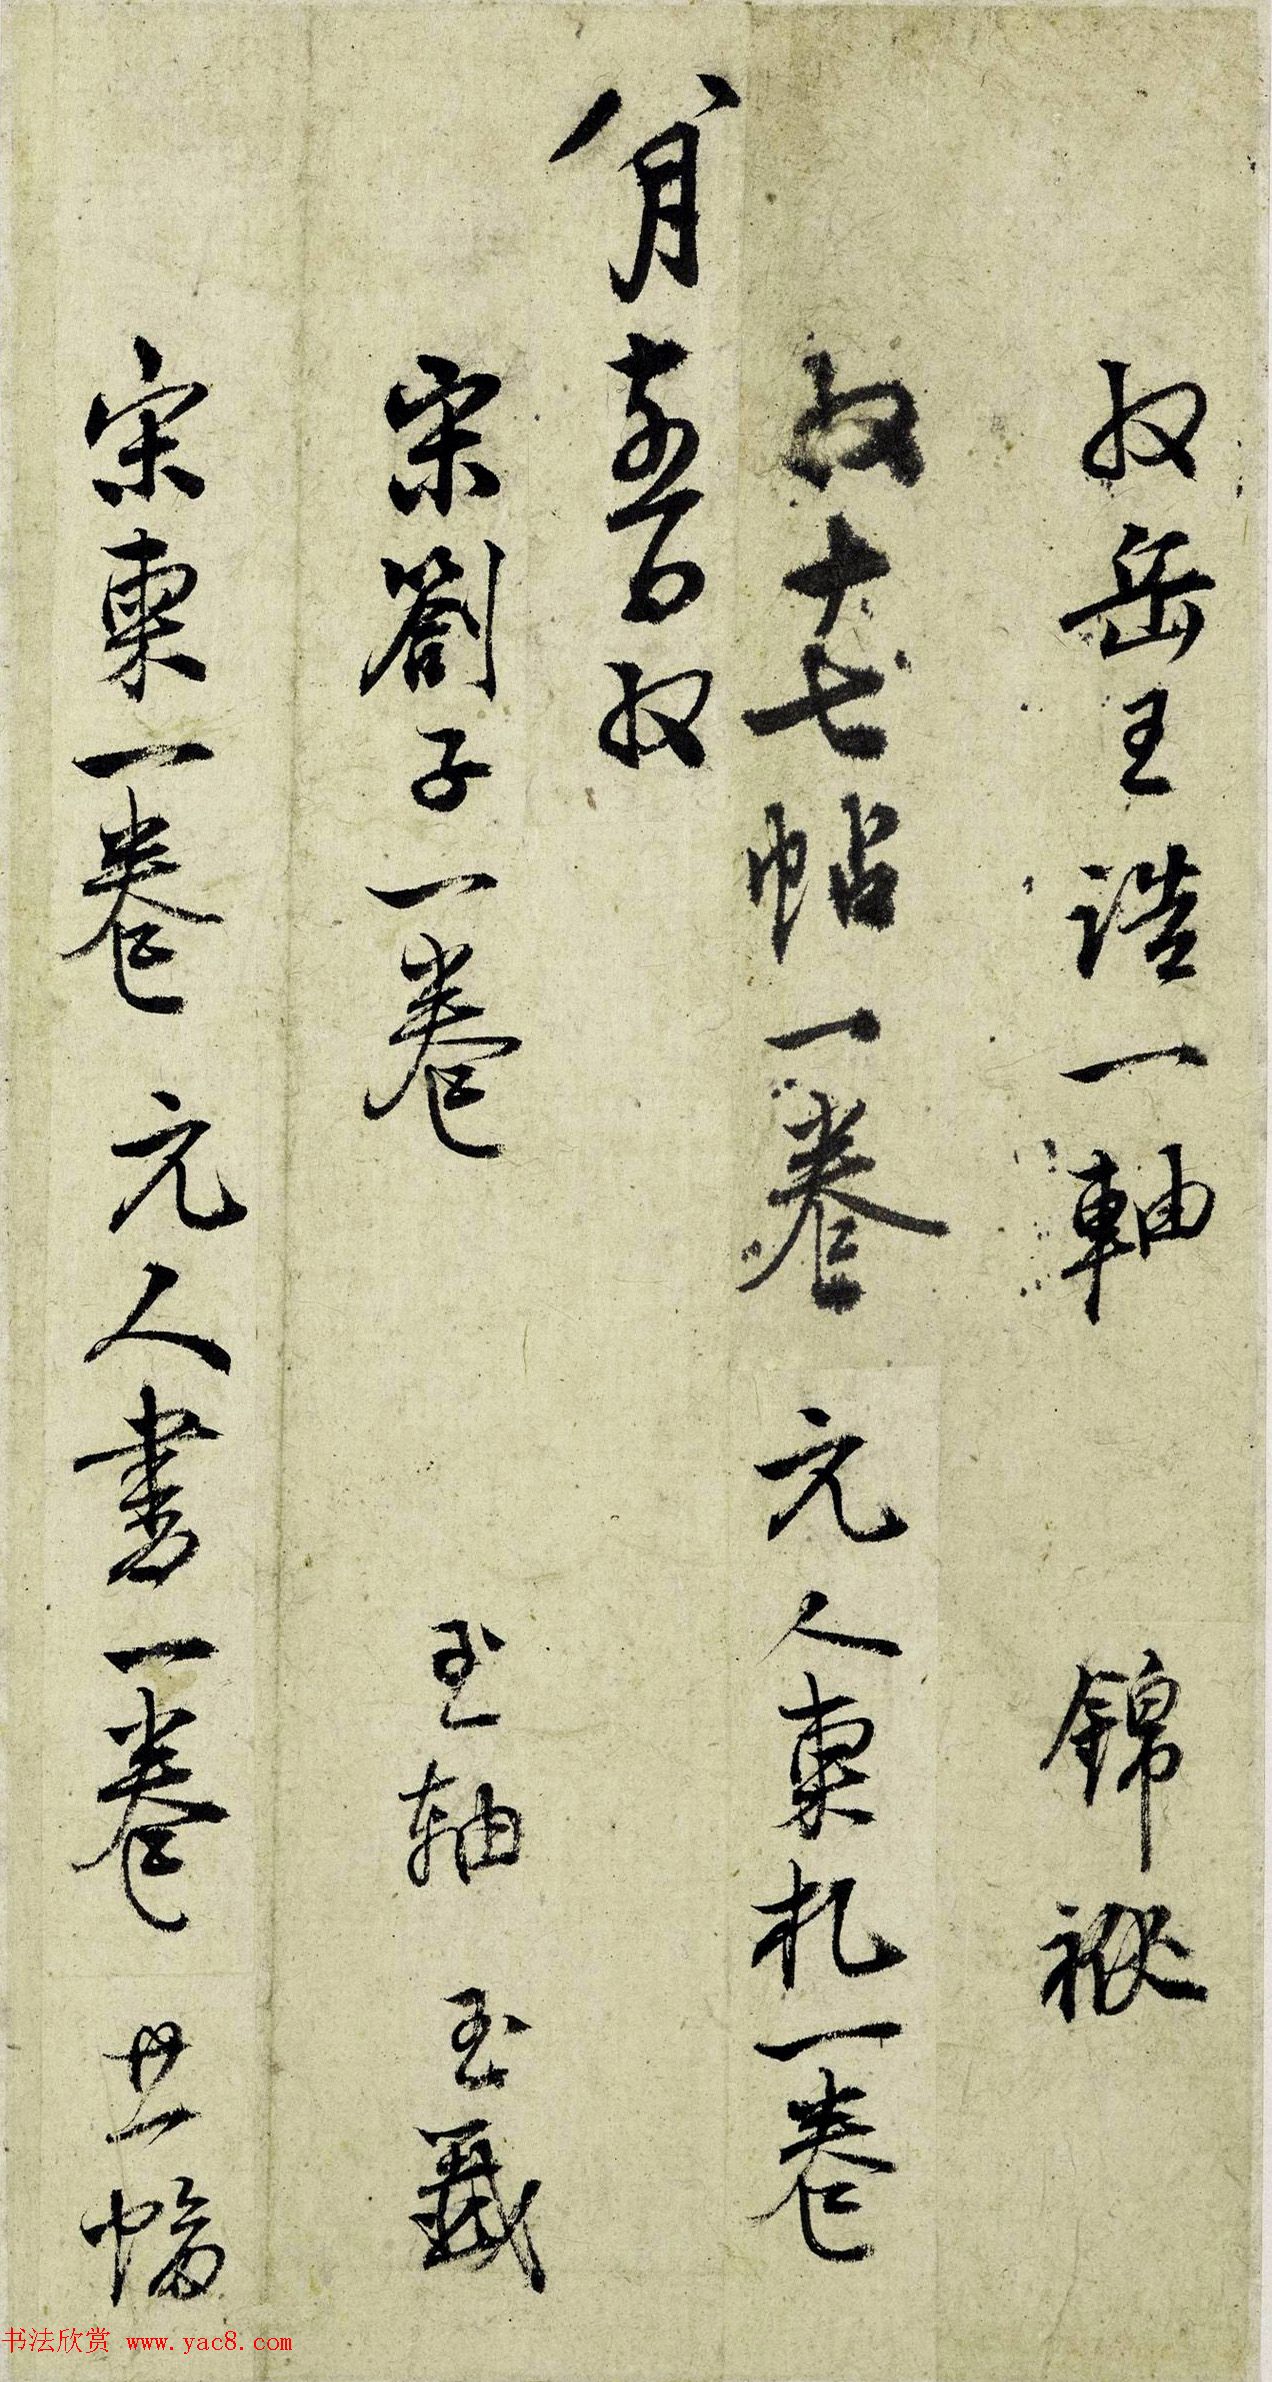 収岳王誥一軸 錦袱
収十七帖一卷 元人柬札一卷
八月 収
宋劄子一卷 玉轴 玉籤
宋柬一卷 元人書一卷 幅
书法欣赏 www.yac8.com